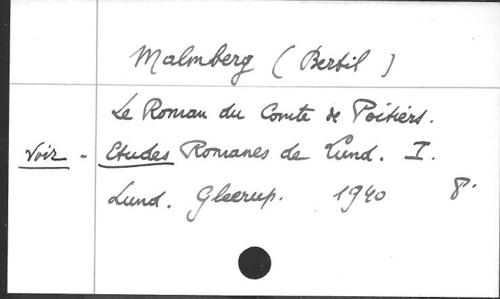 Malmberg (Bertil)
Le Roman du Comte de Poitiers.
Voir - Etudes Romanes de Lund. I.
Lund. Gleerup. 1940 8°